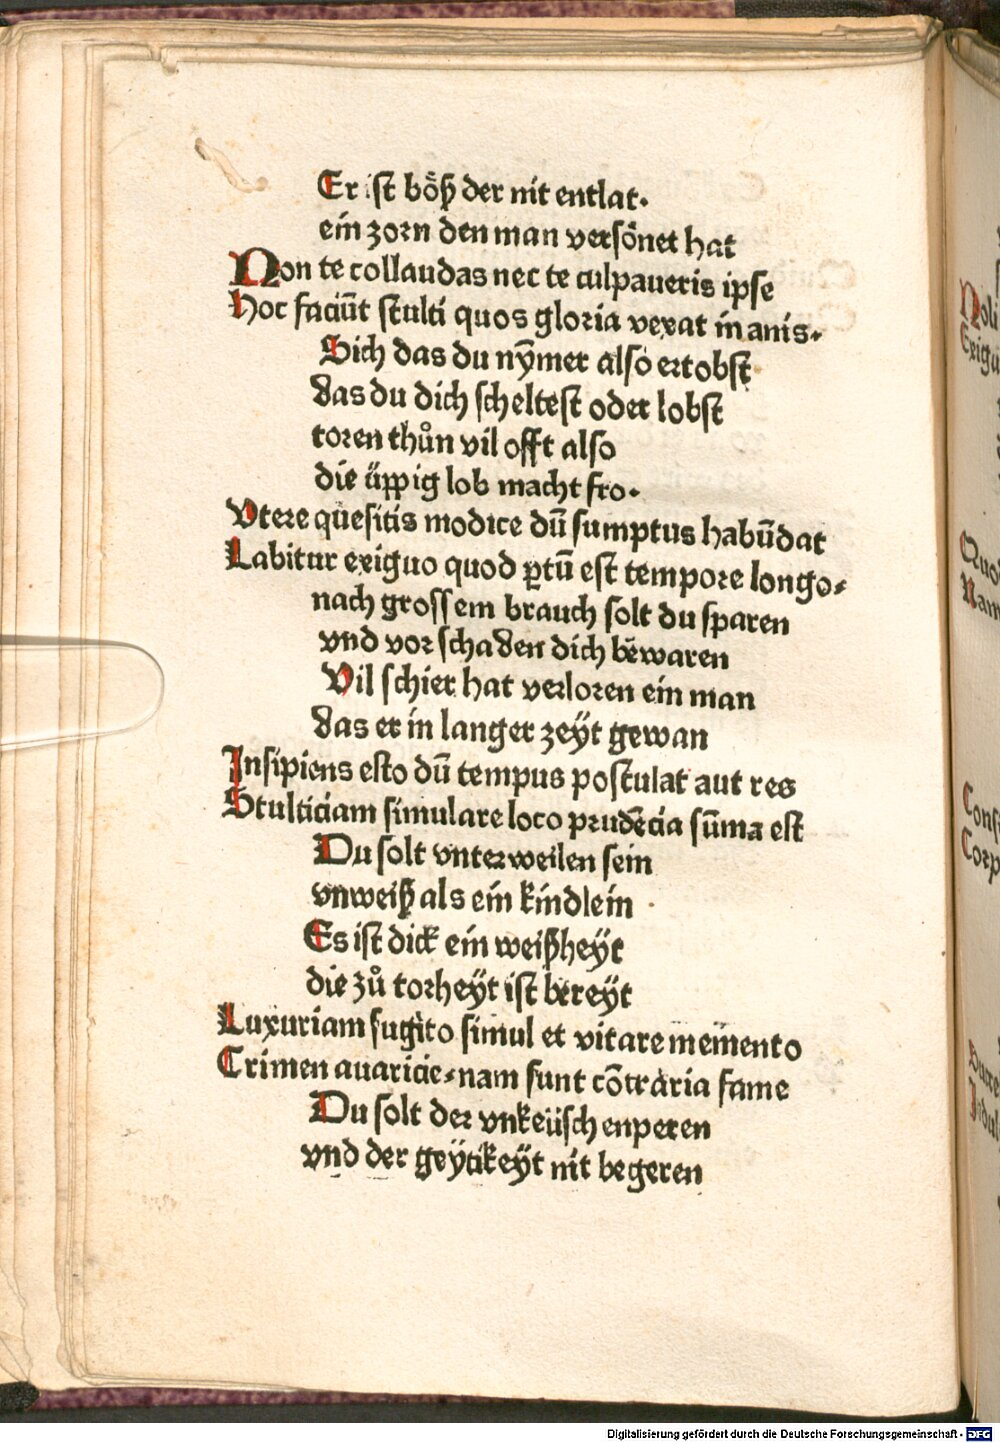 Er ist böß der nit entlat·
ein zorn den man versönet hat
Non te collaudas nec te culpaueris ipse
Hoc faciūt stulti quos gloria vexat in anis·
Sich das du nȳmer also ertobst
das du dich scheltest oder lobst
toren thůn vil offt also
die üppig lob macht fro·
Vtere quesitis modice dū sumptus habūdat
Labitur exiguo quod ꝑtū est tempore longo·
nach grossem brauch solt du sparen
vnd vor schaden dich bewaren
Vil schier hat verloren ein man
das er in langer zeÿt gewan
Insipiens esto dū tempus postulat aut res
Stulticiam simulare loco prudēcia sūma est
Du solt vnterweilen sein
vnweiß als ein kindlein
Es ist dick ein weißheÿt
die zů torheÿt ist bereÿt
Luxuriam fugito simul et vitare memento
Crimen auaricie·nam sunt cōtraria fame
Du solt der vnkeüsch enperen
vnd der geÿtikeÿt nit begeren
Noli
Exig
Quod
Nam
Cons
Corp
Indul
Digitalisierung gefördert durch die Deutsche Forschungsgemeinschaft - DFG